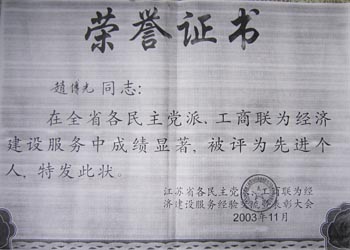 荣誉证书
赵博光 同志:
在全省各民主党派、工商联为经济
建设服务中成绩显著, 被评为先进个
人, 特发此状。
江苏省各民主党派、工商联为经
济建设服务经验交流暨表彰大会
2003年11月